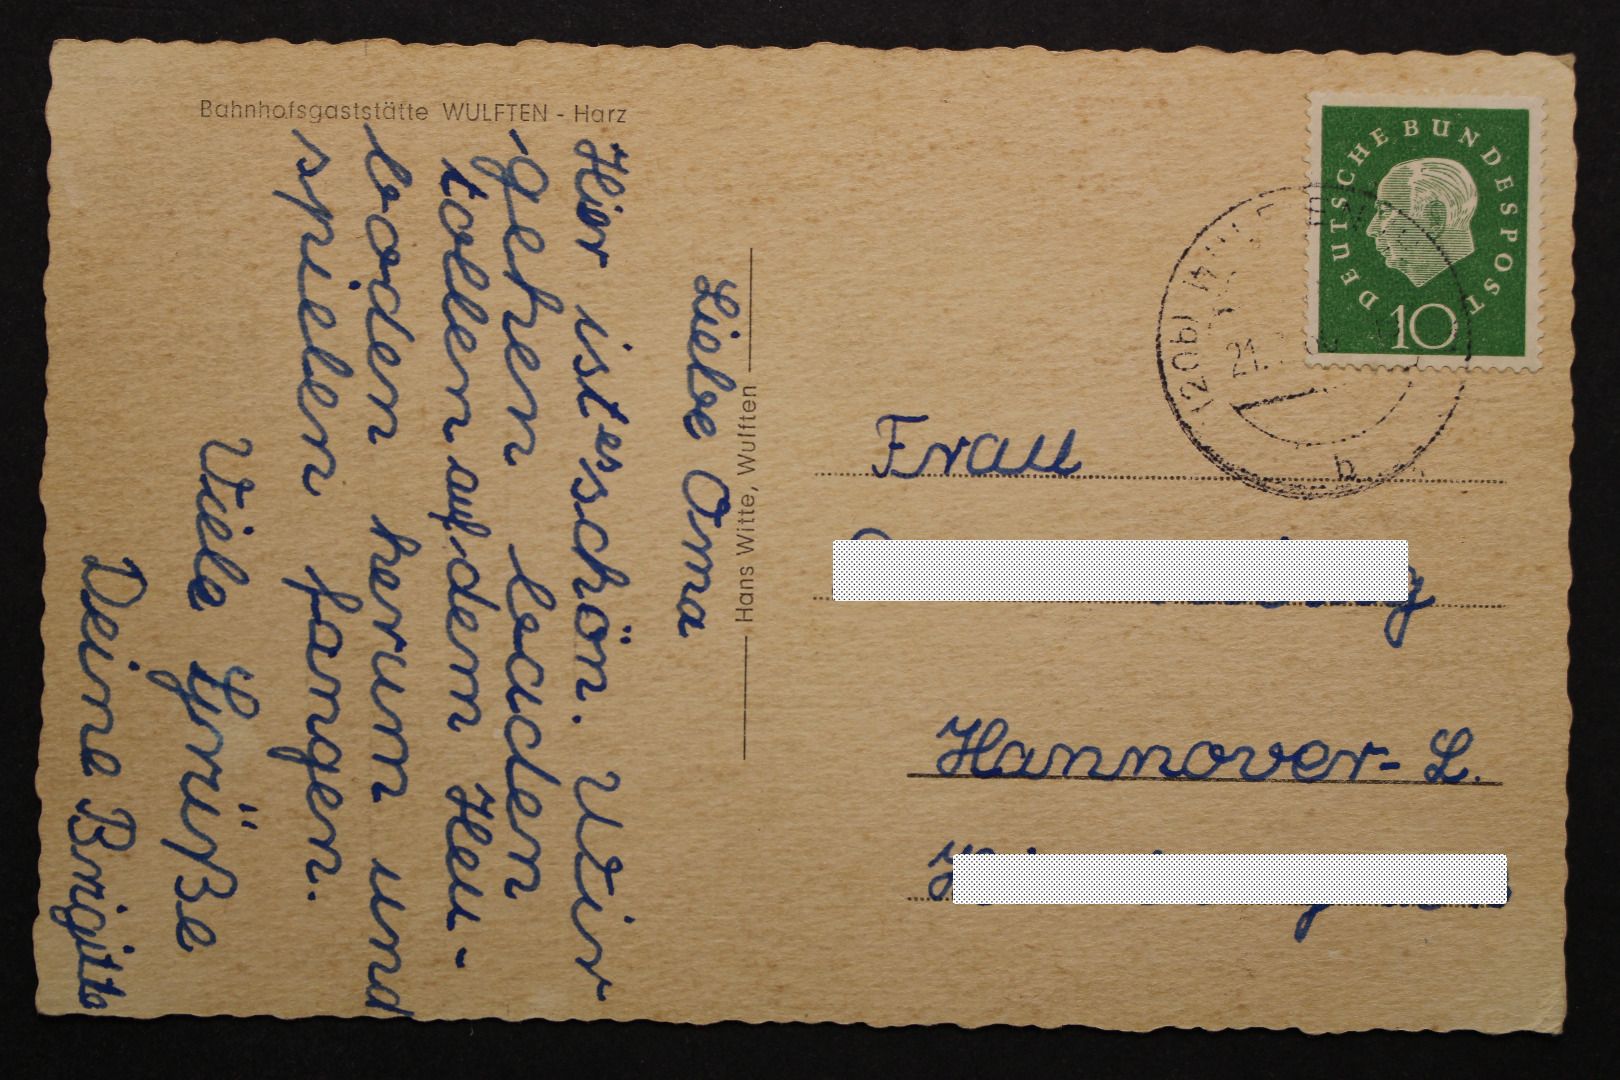 Bahnhofsgaststätte WULFTEN - Harz
Liebe Oma
Hier ist es schön. Wir
gehen baden
tollen auf dem Heu-
boden herum und
spielen fangen.
Viele Grüße
Deine Brigitte
Hans Witte, Wulften
DEUTSCHE BUNDESPOST
10
(20b)
21.
b
Frau
Hannover- L.